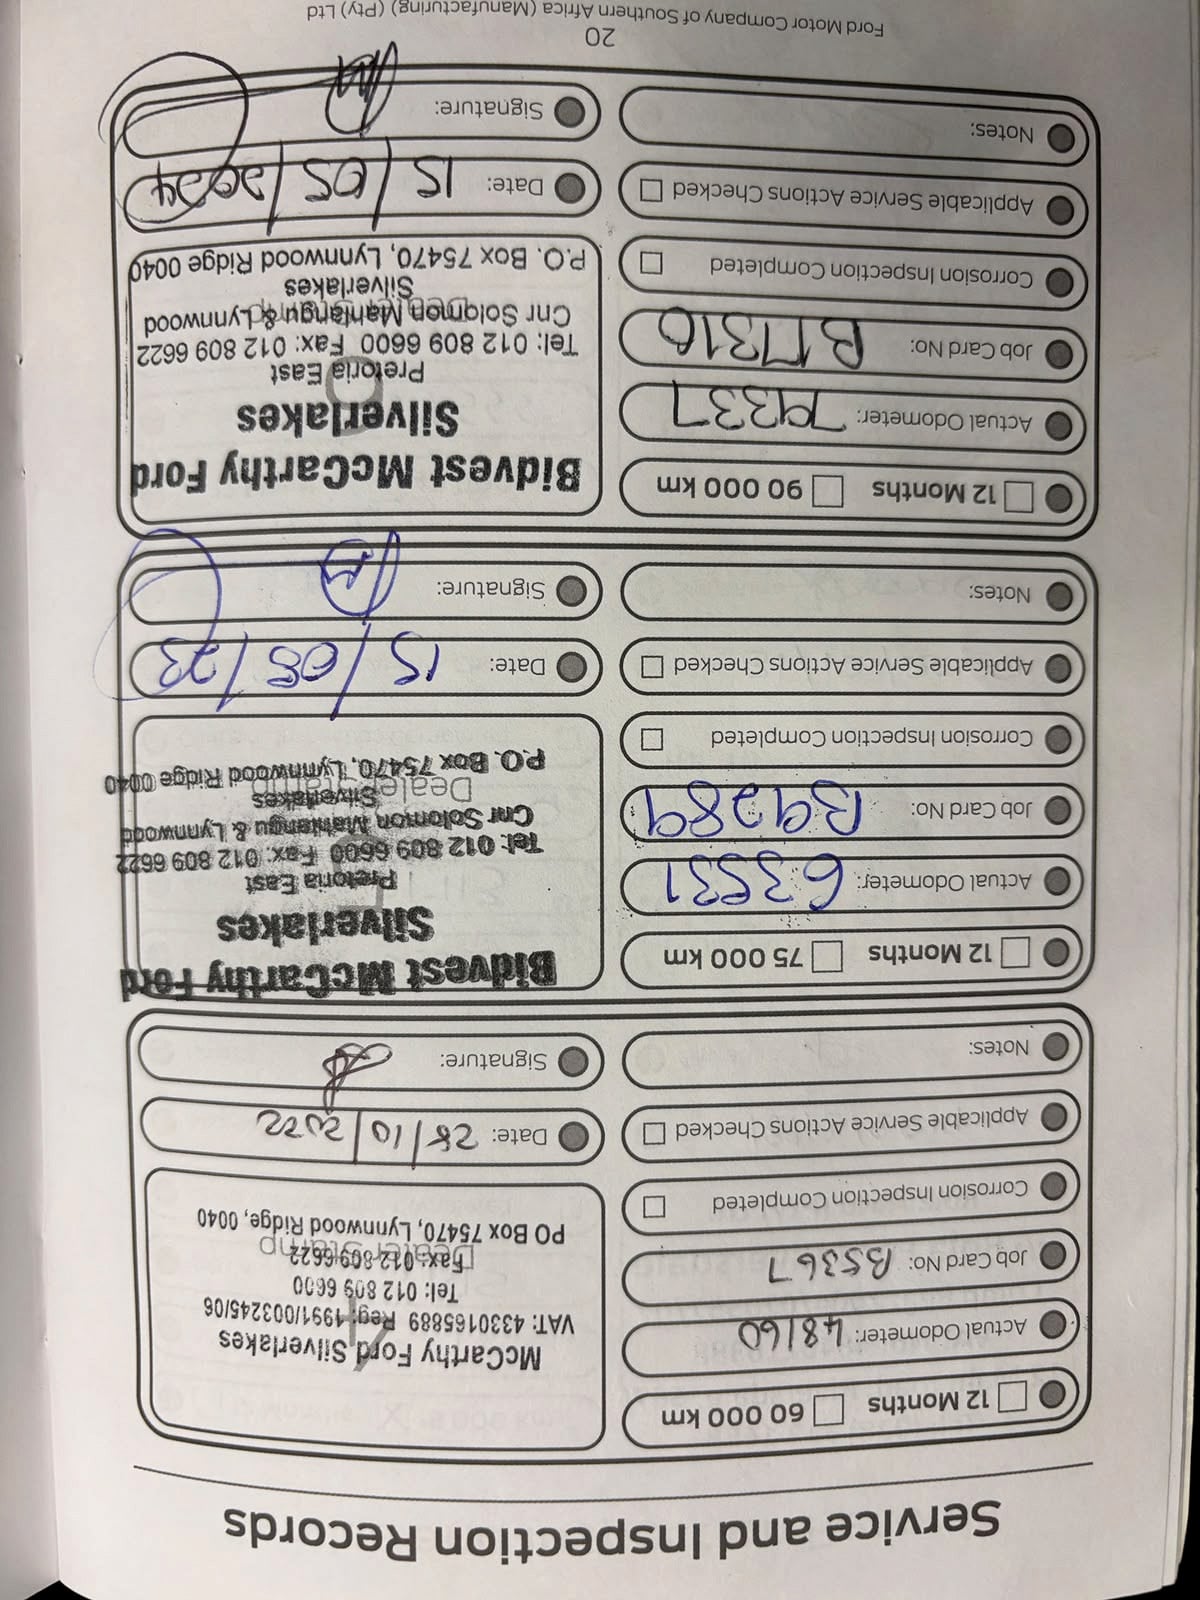 Service and Inspection Records
12 Months 60 000 km
Actual Odometer: 48160
Job Card No: B5367
Corrosion Inspection Completed
Applicable Service Actions Checked
Notes:
McCarthy Ford Silverlakes
VAT: 4330165889 Reg: 1991/003245/06
Tel: 012 809 6600
Fax: 012 809 6622
Dealer Stamp
PO Box 75470, Lynnwood Ridge, 0040
Date: 28/10/2022
Signature:
12 Months 75 000 km
Actual Odometer: 63531
Job Card No: B9289
Corrosion Inspection Completed
Applicable Service Actions Checked
Notes:
Bidvest McCarthy Ford
Silverlakes
Pretoria East
Tel: 012 809 6600 Fax: 012 809 6622
Cnr Solomon Mahlangu & Lynnwood
Silverlakes
Dealer Stamp
P.O. Box 75470, Lynnwood Ridge 0040
Date: 15/05/23
Signature:
12 Months 90 000 km
Actual Odometer: 79337
Job Card No: B17310
Corrosion Inspection Completed
Applicable Service Actions Checked
Notes:
Bidvest McCarthy Ford
Silverlakes
Pretoria East
Tel: 012 809 6600 Fax: 012 809 6622
Cnr Solomon Mahlangu & Lynnwood
Dealer Stamp
Silverlakes
P.O. Box 75470, Lynnwood Ridge 0040
Date: 15/05/2024
Signature:
20
Ford Motor Company of Southern Africa (Manufacturing) (Pty) Ltd